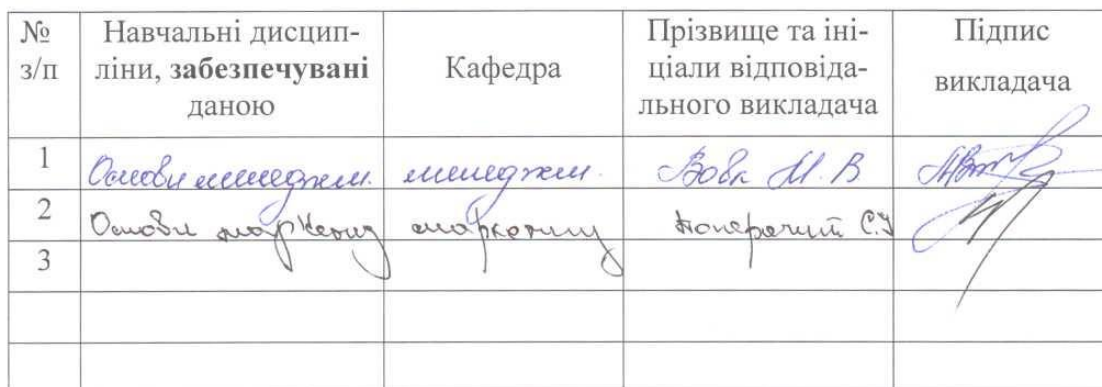 № з/п
Навчальні дисцип-
ліни, забезпечувані
даною
Кафедра
Прізвище та іні-
ціали відповіда-
льного викладача
Підпис
викладача
1 Основи менеджм. менеджм. Вовк М. В
2 Основи маркетинг маркетингу С.І
3